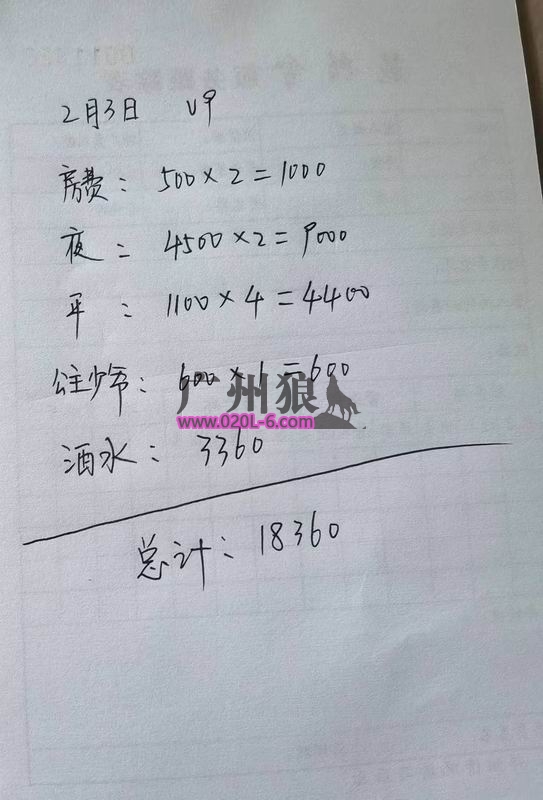 2月3日 V9
房费: 500×2=1000
夜: 4500×2=9000
平: 1100×4=4400
公主少爷: 600×1=600
广州狼
www.020L-6.com
酒水: 3360
总计: 18360